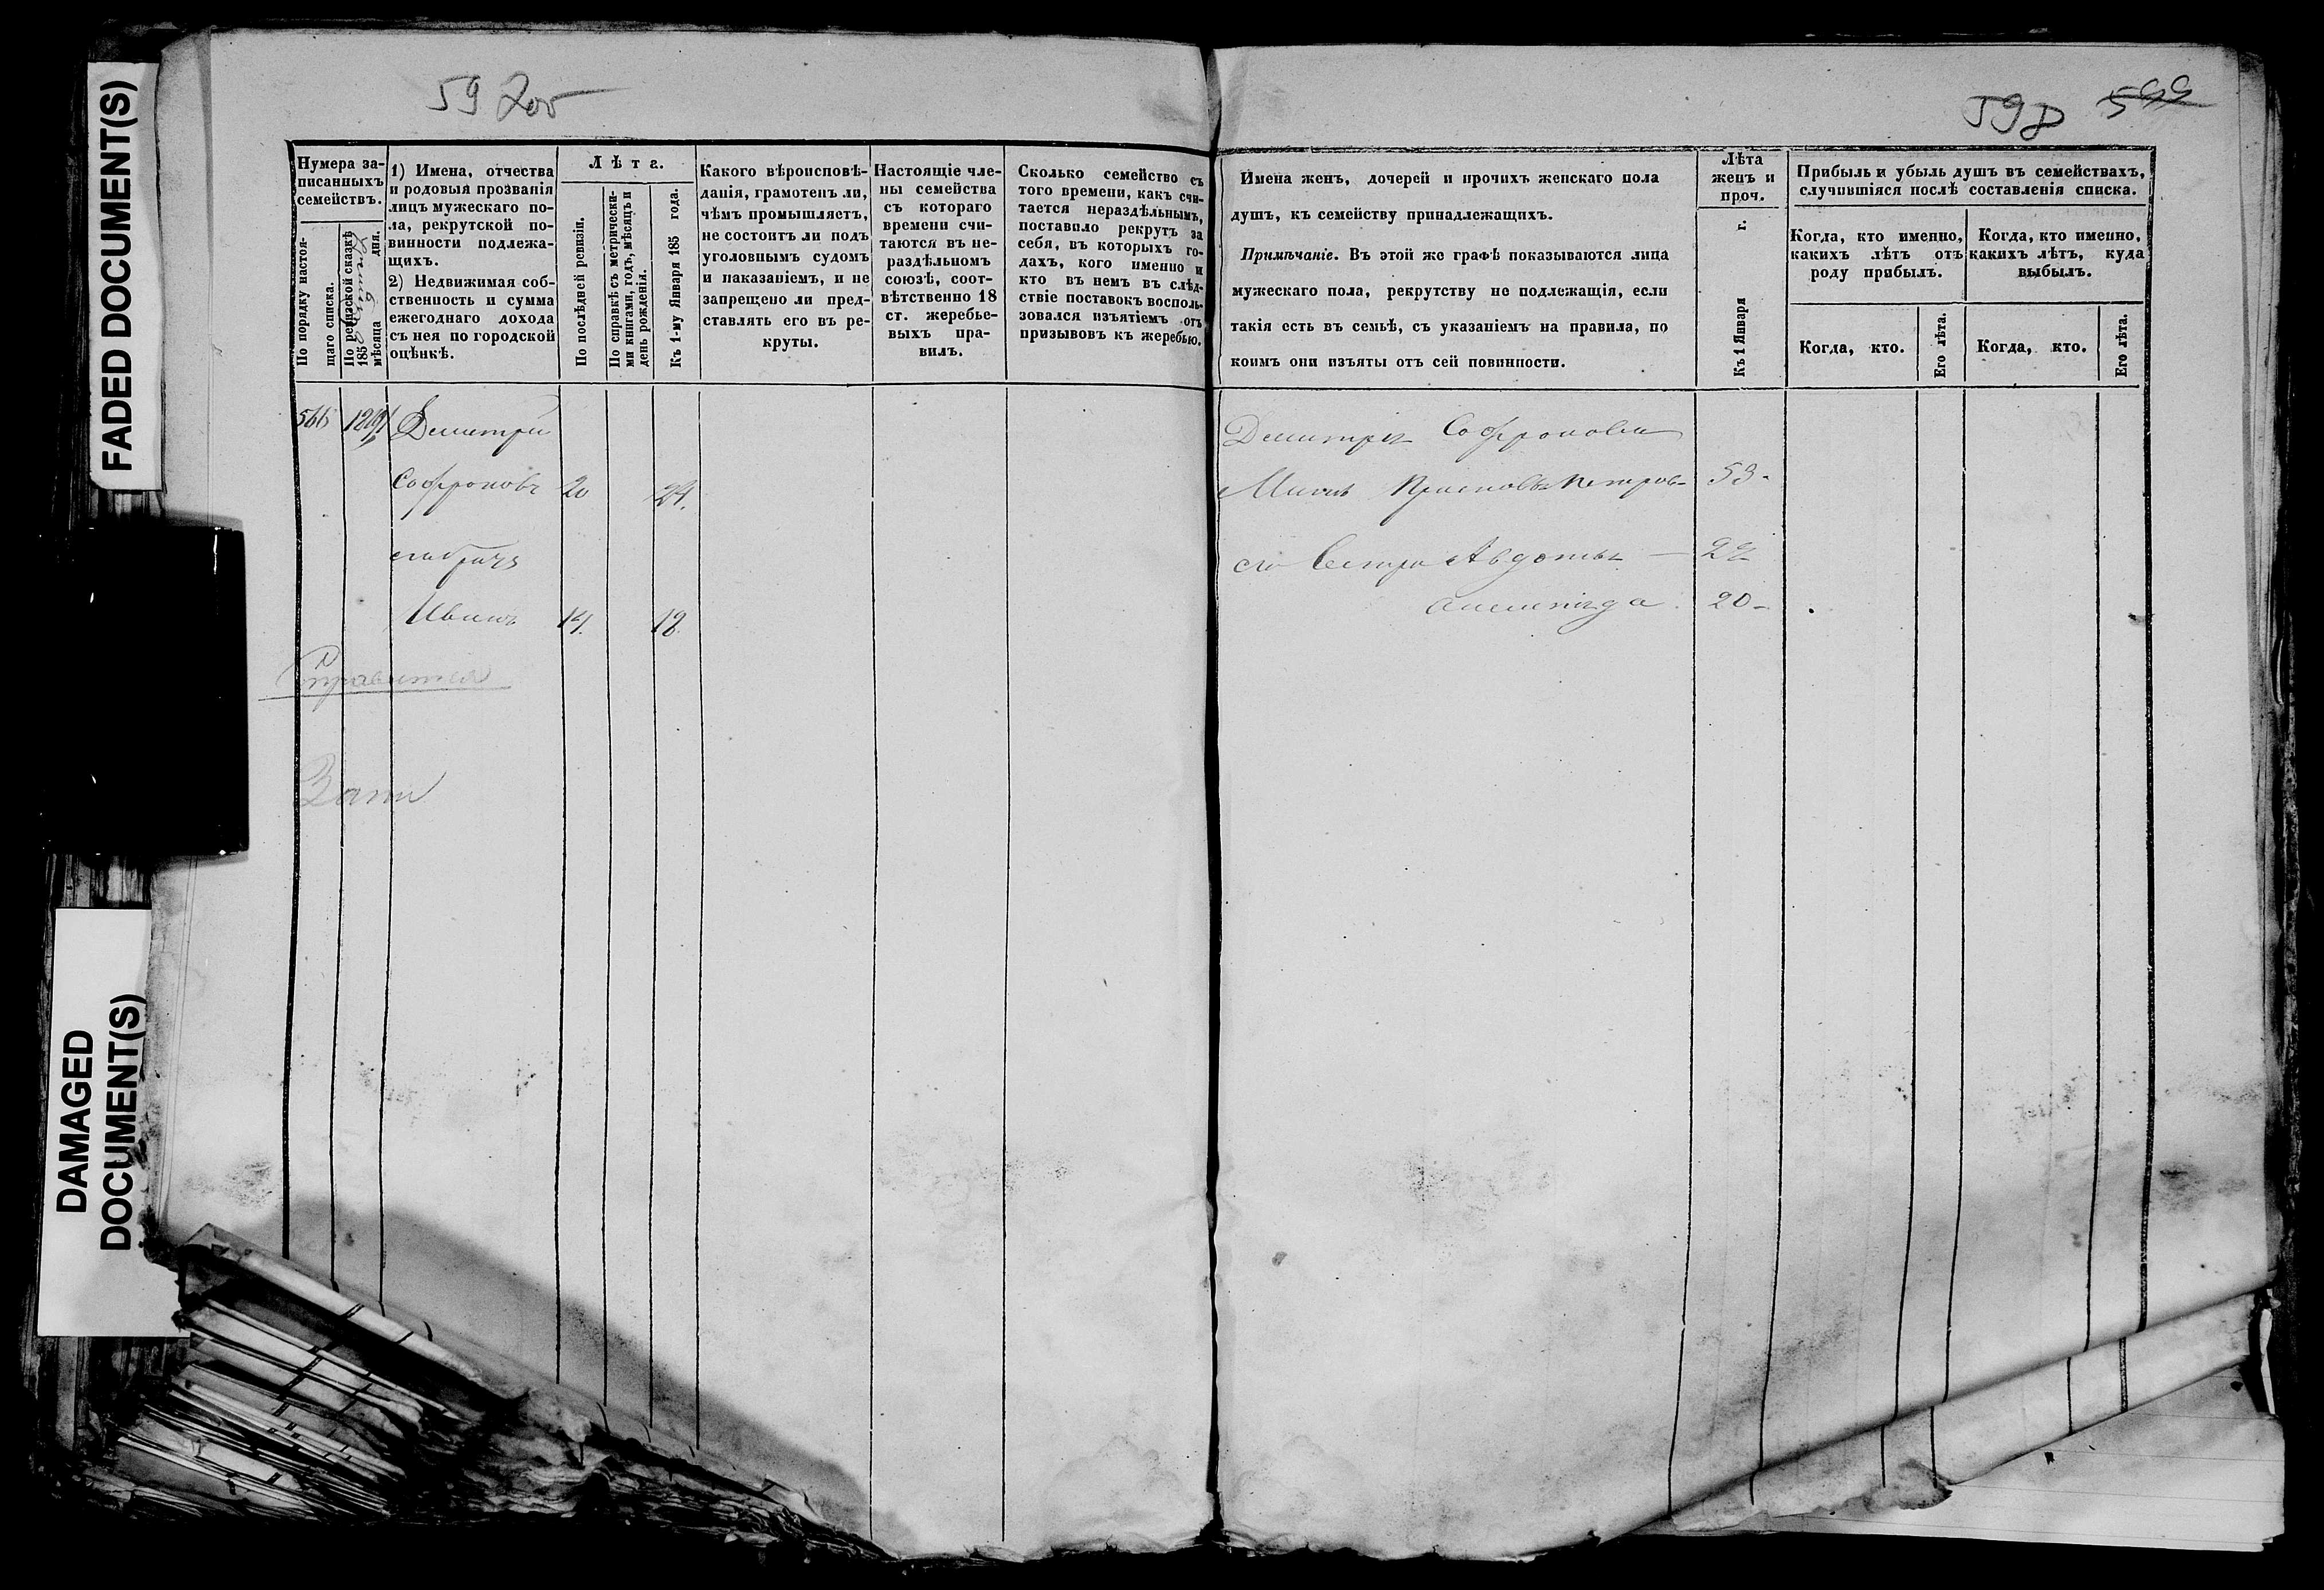 FADED DOCUMENT(S)
DAMAGED
DOCUMENT(S)
59 200
598 599
Нумера за-
писанныхъ
семействъ.
По порядку настоя-
щаго списка.
По ревизской сказкѣ
185
мѣсяца дня.
1) Имена, отчества
и родовыя прозванія
лицъ мужескаго по-
ла, рекрутской по-
винности подлежа-
щихъ.
2) Недвижимая соб-
ственность и сумма
ежегоднаго дохода
съ нея по городской
оцѣнкѣ.
Лѣта.
По послѣдней ревизіи.
По справкѣ съ метрически-
ми книгами, годъ, мѣсяцъ и
день рожденія.
Къ 1-му Января 185 года.
Какого вѣроисповѣ-
данія, грамотенъ ли,
чѣмъ промышляетъ,
не состоитъ ли подъ
уголовнымъ судомъ
и наказаніемъ, и не
запрещено ли пред-
ставлять его въ ре-
круты.
Настоящіе чле-
ны семейства
съ котораго
времени счи-
таются въ не-
раздѣльномъ
союзѣ, соот-
вѣтственно 18
ст. жеребье-
выхъ пра-
вилъ.
Сколько семейство съ
того времени, какъ счи-
тается нераздѣльнымъ,
поставило рекрутъ за
себя, въ которыхъ го-
дахъ, кого именно и
кто въ немъ въ слѣд-
ствіе поставокъ восполь-
зовался изъятіемъ отъ
призывовъ къ жеребью.
Имена женъ, дочерей и прочихъ женскаго пола
душъ, къ семейству принадлежащихъ.
Примѣчаніе. Въ этой же графѣ показываются лица
мужескаго пола, рекрутству не подлежащія, если
такія есть въ семьѣ, съ указаніемъ на правила, по
коимъ они изъяты отъ сей повинности.
Лѣта
женъ и
проч.
Къ 1 Января г.
Прибыль и убыль душъ въ семействахъ,
случившіяся послѣ составленія списка.
Когда, кто именно,
какихъ лѣтъ отъ
роду прибылъ.
Когда, кто именно,
какихъ лѣтъ, куда
выбылъ.
Когда, кто.
Его лѣта.
Когда, кто.
Его лѣта.
Дмитрій
Софроновъ 20 24.
его братъ
Иванъ 14. 18.
Дмитрія Софронова
Мать Петров 53.
его Сестра Авдотья — 22
20